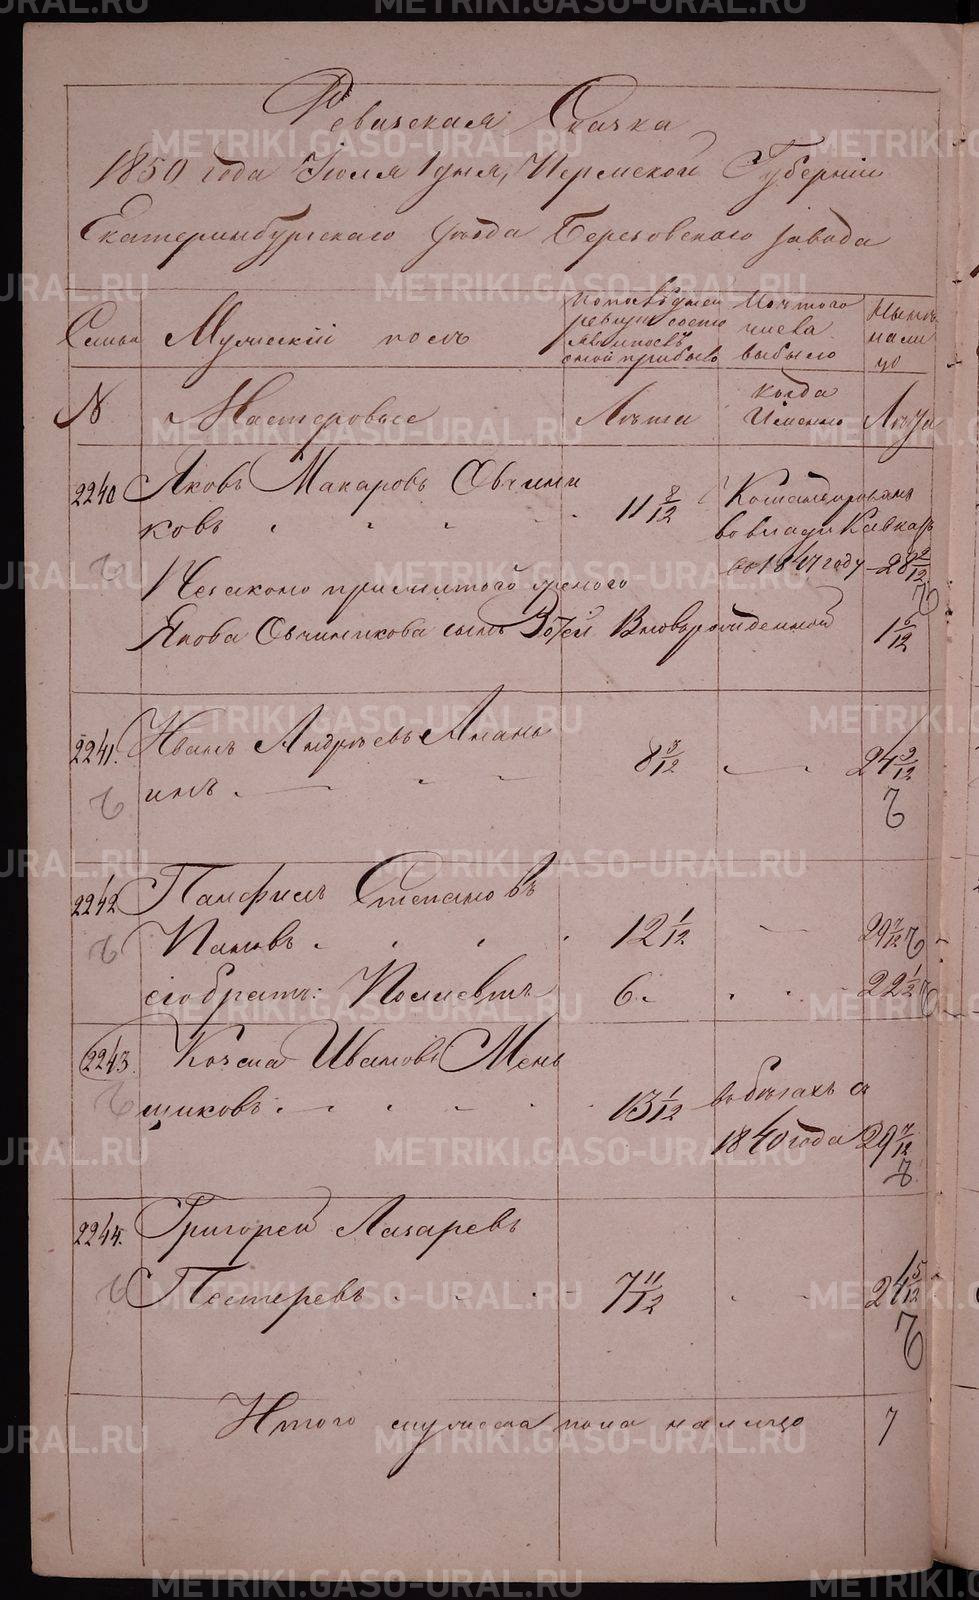 Ревизская Сказка
1850 года Июля 1 дня, Пермской Губернии
Екатеринбургскаго уезда Березовскаго завода
Семьи
Мужеский полъ
По последней ревизии состояло и после оной прибыло
Изъ того числа выбыло
Ныне на лицо
№
Мастеровые
Лета
когда Именно
Лета
2240
Яковъ Макаровъ Овчинни
ковъ
11 8/12
Командированъ
во Влади Кавказъ
во 1847 году
28 2/12
Незаконно прижитого
Якова Овчинникова сынъ Зотей Вновьрожденной
1 6/12
2241.
Иванъ Андреевъ Анань
инъ
8 3/12
24 9/12
2242
Памфилъ Степановъ
Пановъ
12 1/12
29 7/12
его братъ: Полиевктъ
6
22 1/2
2243.
Козма Ивановъ Мень
щиковъ
13 1/12
въ бегахъ съ
1840 года
29 7/12
2244.
Григорей Лазаревъ
Пестеревъ
7 11/12
24 5/12
Итого мужеска пола на лицо
7
METRIKI.GASO-URAL.RU